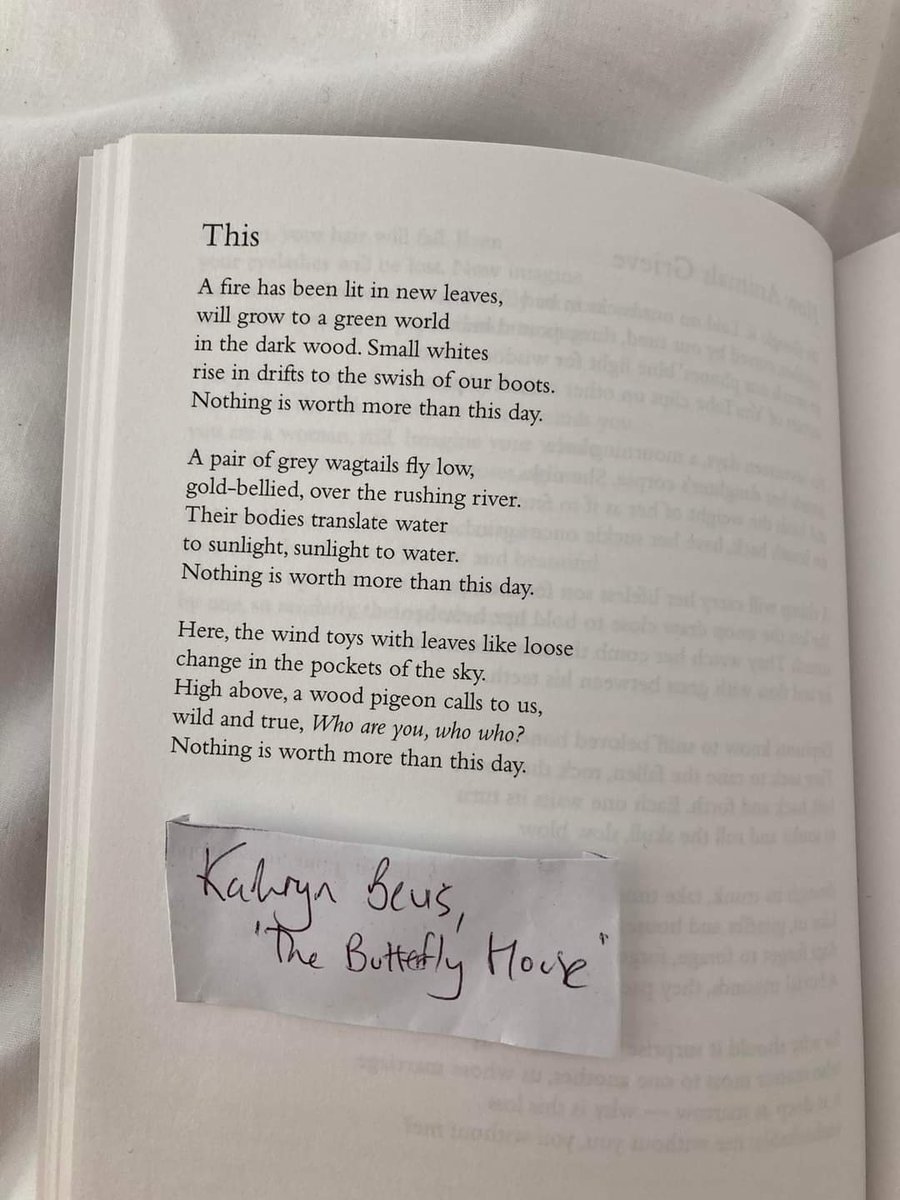 This
A fire has been lit in new leaves,
will grow to a green world
in the dark wood. Small whites
rise in drifts to the swish of our boots.
Nothing is worth more than this day.
A pair of grey wagtails fly low,
gold-bellied, over the rushing river.
Their bodies translate water
to sunlight, sunlight to water.
Nothing is worth more than this day.
Here, the wind toys with leaves like loose
change in the pockets of the sky.
High above, a wood pigeon calls to us,
wild and true, Who are you, who who?
Nothing is worth more than this day.
Kathryn Bevis,
"The Butterfly House"